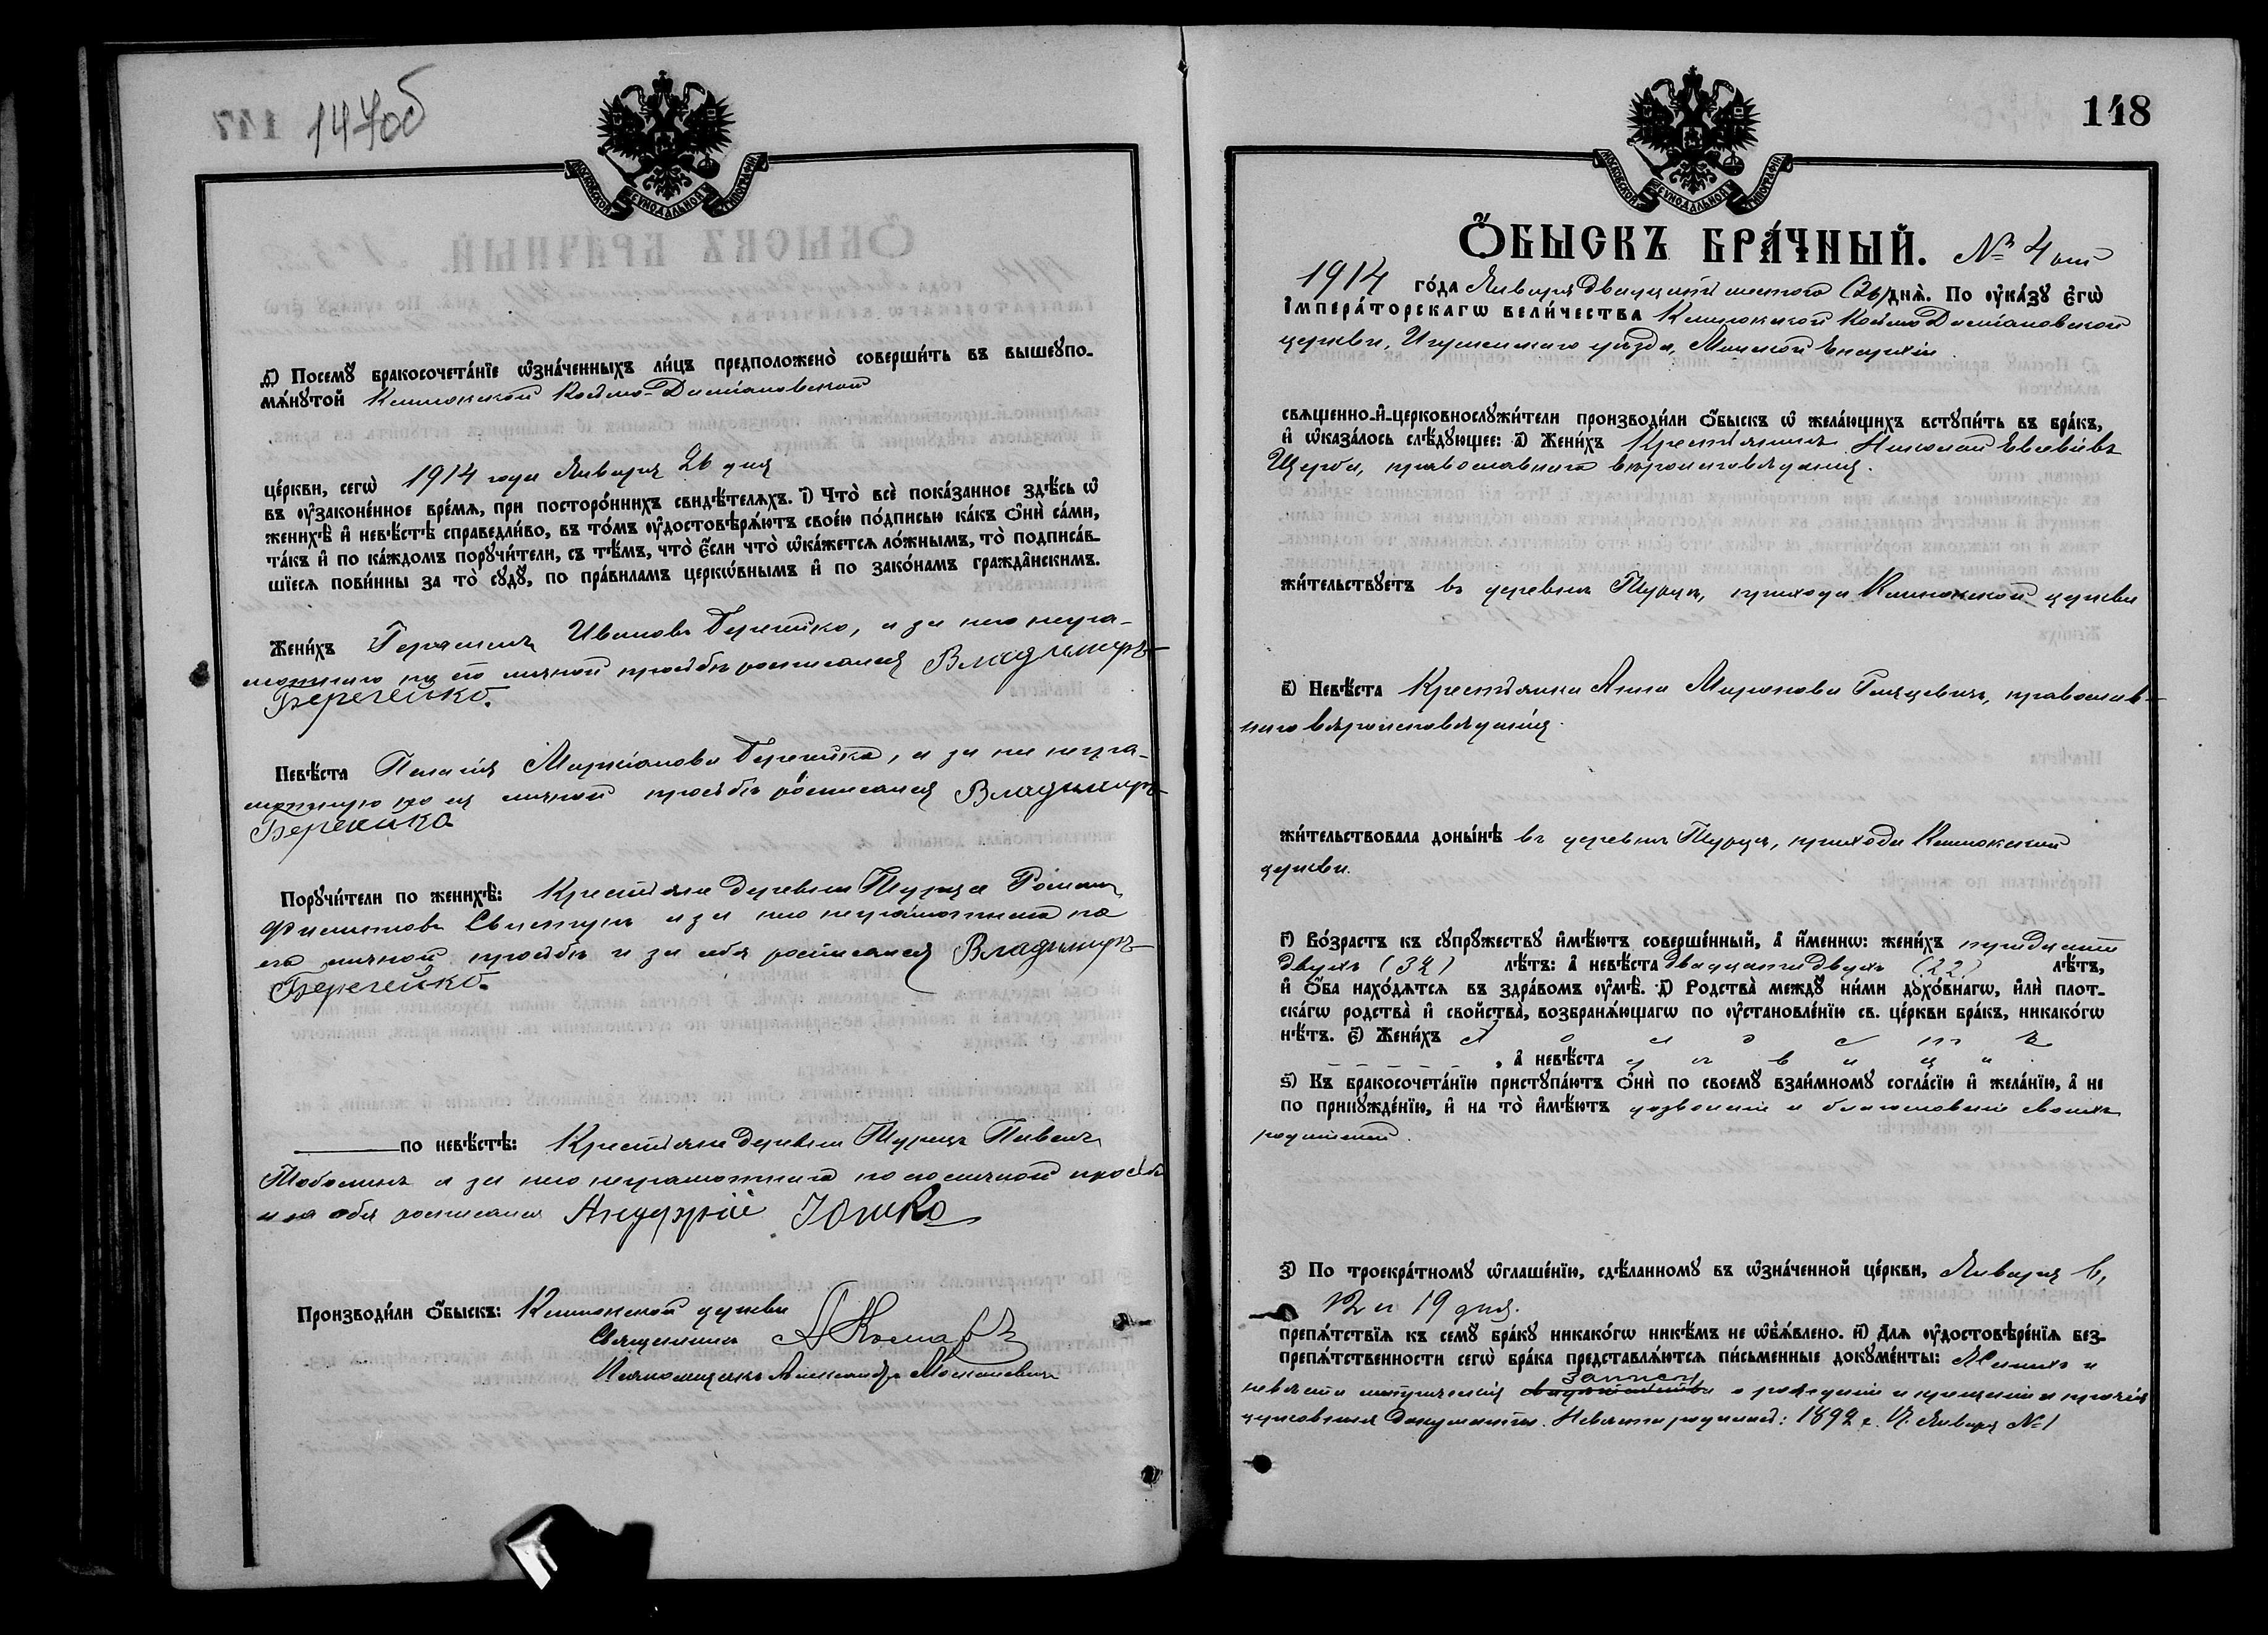 147об
МОСКОВСКОЙ СѴНОДАЛЬНОЙ ТИПОГРАФІИ
д҃) Посемꙋ̀ бракосочета́нїе ѡ҆зна́ченныхъ ли́цъ предположено̀ соверши́ть въ вышеꙋпо-
мѧ́нꙋтой Клинокской Косьмо-Даміановской
це́ркви, сегѡ̀ 1914 года Января 26 дня
въ ᲂу҆законе́нное вре́мѧ, при посторо́ннихъ свидѣ́телѧхъ. і҃) Что̀ всѐ пока́занное здѣ́сь ѡ҆
женихѣ̀ и҆ невѣ́стѣ справедли́во, въ то́мъ ᲂу҆достовѣрѧ́ютъ свое́ю по́дписью ка́къ ѻ҆нѝ са́ми,
та́къ и҆ по ка́ждомъ порꙋчи́тели, съ тѣ́мъ, что̀ є҆́сли что̀ ѡ҆ка́жетсѧ ло́жнымъ, то̀ подписа́в-
шїесѧ пови́нны за то̀ сꙋдꙋ̀, по пра́виламъ церкѡ́внымъ и҆ по зако́намъ гражда̑нскимъ.
Жени́хъ Герасимъ Ивановъ Беречейко, а за него негра-
мотнаго по его личной просьбѣ росписался Владимиръ
Беречейко.
Невѣ́ста Пелагія Беречейко, а за нее негра-
мотную по ея личной просьбѣ росписался Владимиръ
Беречейко
Порꙋчи́тели по женихѣ̀: Крестьяне деревни Турца Романъ
Филиповъ Свистунъ а за него неграмотнаго по
его личной просьбѣ и за себя росписался Владимиръ
Беречейко.
по невѣ́стѣ: Крестьяне деревни Турца Павелъ
а за него неграмотнаго по его личной просьбѣ
и за себя росписался Андррій Юшко
Производи́ли ѻ҆́быскъ: Клинокской церкви
Священникъ
Псаломщикъ Александръ
148
МОСКОВСКОЙ СѴНОДАЛЬНОЙ ТИПОГРАФІИ
Ѻ҆́БЫСКЪ БРА́ЧНЫЙ. № 4 ый
1914 го́да Января двадцать шестого (26) днѧ̀. По ᲂу҆ка́зꙋ Є҆гѡ̀
І҆мпера́торскагѡ вели́чества Клинокской Косьмо Даміановской
церкви, Игуменскаго уѣзда, Минской Епархіи.
свѧще́нно-и҆-церковнослꙋжи́тели производи́ли ѻ҆́быскъ ѡ҆ жела́ющихъ встꙋпи́ть въ бра́къ,
и҆ ѡ҆каза́лось слѣ́дꙋющее: а҃) Жени́хъ Крестьянинъ Николай Евсевіевъ
Щерба, православнаго вѣроисповѣданія.
жи́тельствꙋетъ въ деревнѣ Турцѣ, прихода Клинокской церкви
в҃) Невѣ́ста Крестьянка Анна Миронова православ-
наго вѣроисповѣданія.
жи́тельствовала доны́нѣ въ деревнѣ Турцѣ, прихода Клинокской
церкви.
г҃) Во́зрастъ къ сꙋпрꙋ́жествꙋ и҆мѣ́ютъ соверше́нный, а҆ и҆́меннѡ: жени́хъ тридцати
двухъ (32) лѣ́тъ: а҆ невѣ́ста двадцати двухъ (22) лѣ́тъ,
и҆ ѻ҆́ба нахо́дѧтсѧ въ здра́вомъ ᲂу҆мѣ̀. д҃) Родства̀ междꙋ̀ ни́ми дꙋхо́внагѡ, и҆лѝ плот-
ска́гѡ родства̀ и҆ свойства̀, возбранѧ́ющагѡ по ᲂу҆становле́нїю св. це́ркви бра́къ, никако́гѡ
нѣ́тъ. є҃) Жени́хъ холостъ
, а҆ невѣ́ста дѣвица
ѕ҃) Къ бракосочета́нїю пристꙋпа́ютъ ѻ҆нѝ по своемꙋ̀ взаи́мномꙋ согла́сїю и҆ жела́нїю, а҆ не
по принꙋжде́нїю, и҆ на то̀ и҆мѣ́ютъ дозволеніе и благословеніе своихъ
родителей.
з҃) По троекра́тномꙋ ѡ҆глаше́нїю, сдѣ́ланномꙋ въ ѡ҆зна́ченной це́ркви, Января 6,
12 и 19 дня.
препѧ́тствїѧ къ семꙋ̀ бра́кꙋ никако́гѡ никѣ́мъ не ѡ҆б̾ѧ́влено. и҃) Длѧ ᲂу҆достовѣре́нїѧ без-
препѧ́тственности сегѡ̀ бра́ка представлѧ́ютсѧ пи́сьменные докꙋме́нты: Жениха и
записи
невѣсты метрическія о рожденіи и крещеніи и прочіе
церковные документы. Невѣста родилась: 1892 г. Января № 1